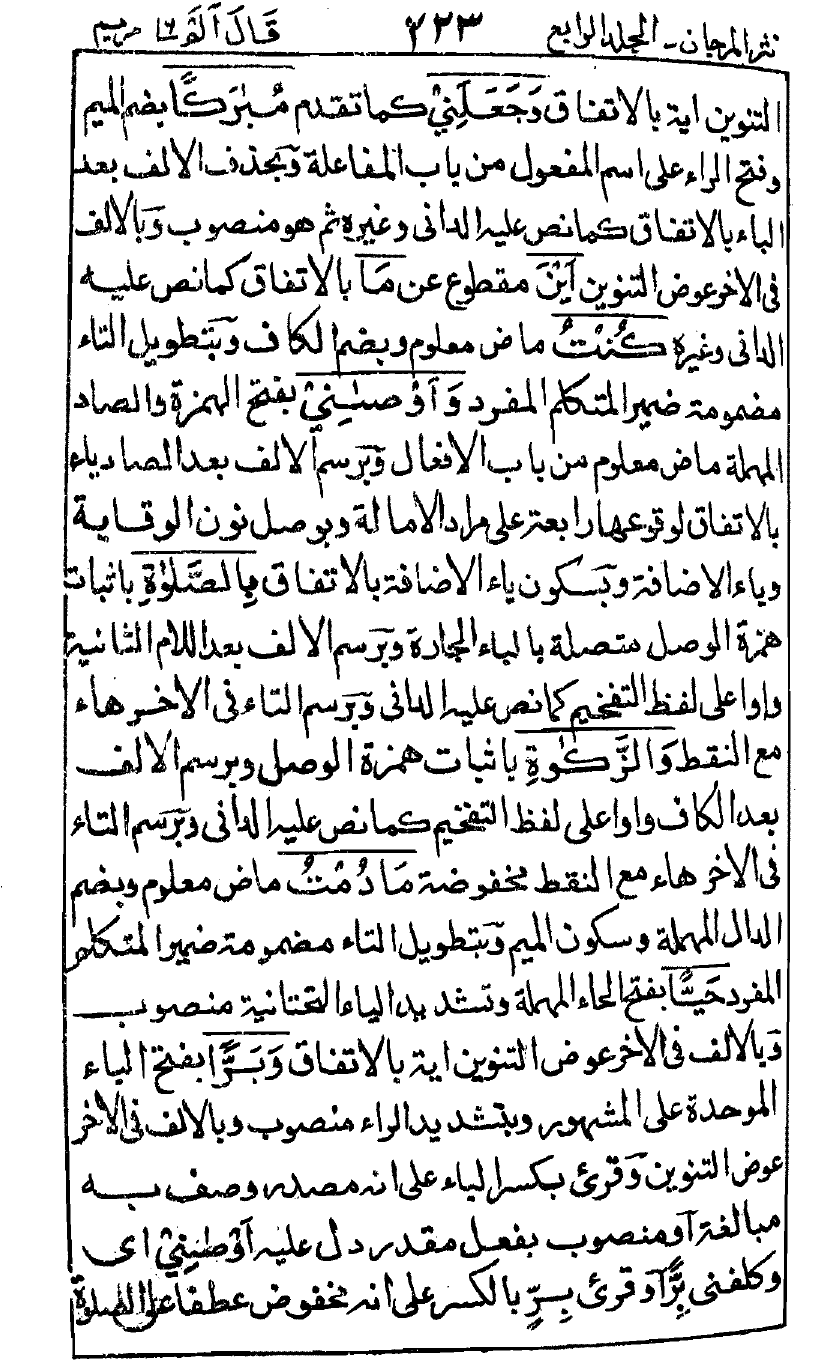 نثر المرجان - المجلد الرابع ٧٢٣ قال الم ١٦ مريم
التنوين اية بالاتفاق وَجَعَلَنِيْ كما تقدم مُبٰرَكًا بضم الميم
وفتح الراء على اسم المفعول من باب المفاعلة وبحذف الالف بعد
الباء بالاتفاق كما نص عليه الدانى وغيره ثم هو منصوب وبالالف
فى الاخر عوض التنوين اَيْنَ مقطوع عن مَا بالاتفاق كما نص عليه
الدانى وغيره كُنْتُ ماض معلوم وبضم الكاف وبتطويل التاء
مضمومة ضمير المتكلم المفرد وَاَوْصٰىنِيْ بفتح الهمزة والصاد
المهملة ماض معلوم من باب الافعال وبرسم الالف بعد الصاد ياء
بالاتفاق لوقوعها رابعة على مراد الامالة وبوصل نون الوقاية
وياء الاضافة وبسكون ياء الاضافة بالاتفاق بِالصَّلٰوةِ باثبات
همزة الوصل متصلة بالباء الجارة وبرسم الالف بعد اللام الثانية
واوا على لفظ التفخيم كما نص عليه الدانى وبرسم التاء فى الاخر هاء
مع النقط وَالزَّكٰوةِ باثبات همزة الوصل وبرسم الالف
بعد الكاف واوا على لفظ التفخيم كما نص عليه الدانى وبرسم التاء
فى الاخر هاء مع النقط مخفوضة مَا دُمْتُ ماض معلوم وبضم
الدال المهملة وسكون الميم وبتطويل التاء مضمومة ضمير المتكلم
المفرد حَيًّا بفتح الحاء المهملة وتشديد الياء التحتانية منصوب
وبالالف فى الاخر عوض التنوين اية بالاتفاق وَبَرًّا بفتح الباء
الموحدة على المشهور وبتشديد الراء منصوب وبالالف فى الاخر
عوض التنوين وقرئ بكسر الباء على انه مصدر وصف به
مبالغة او منصوب بفعل مقدر دل عليه اَوْصٰىنِيْ اى
وكلفنى بِرًّا وقرئ بِرٍّ بالكسر على انه مخفوض عطفا على الصلوة